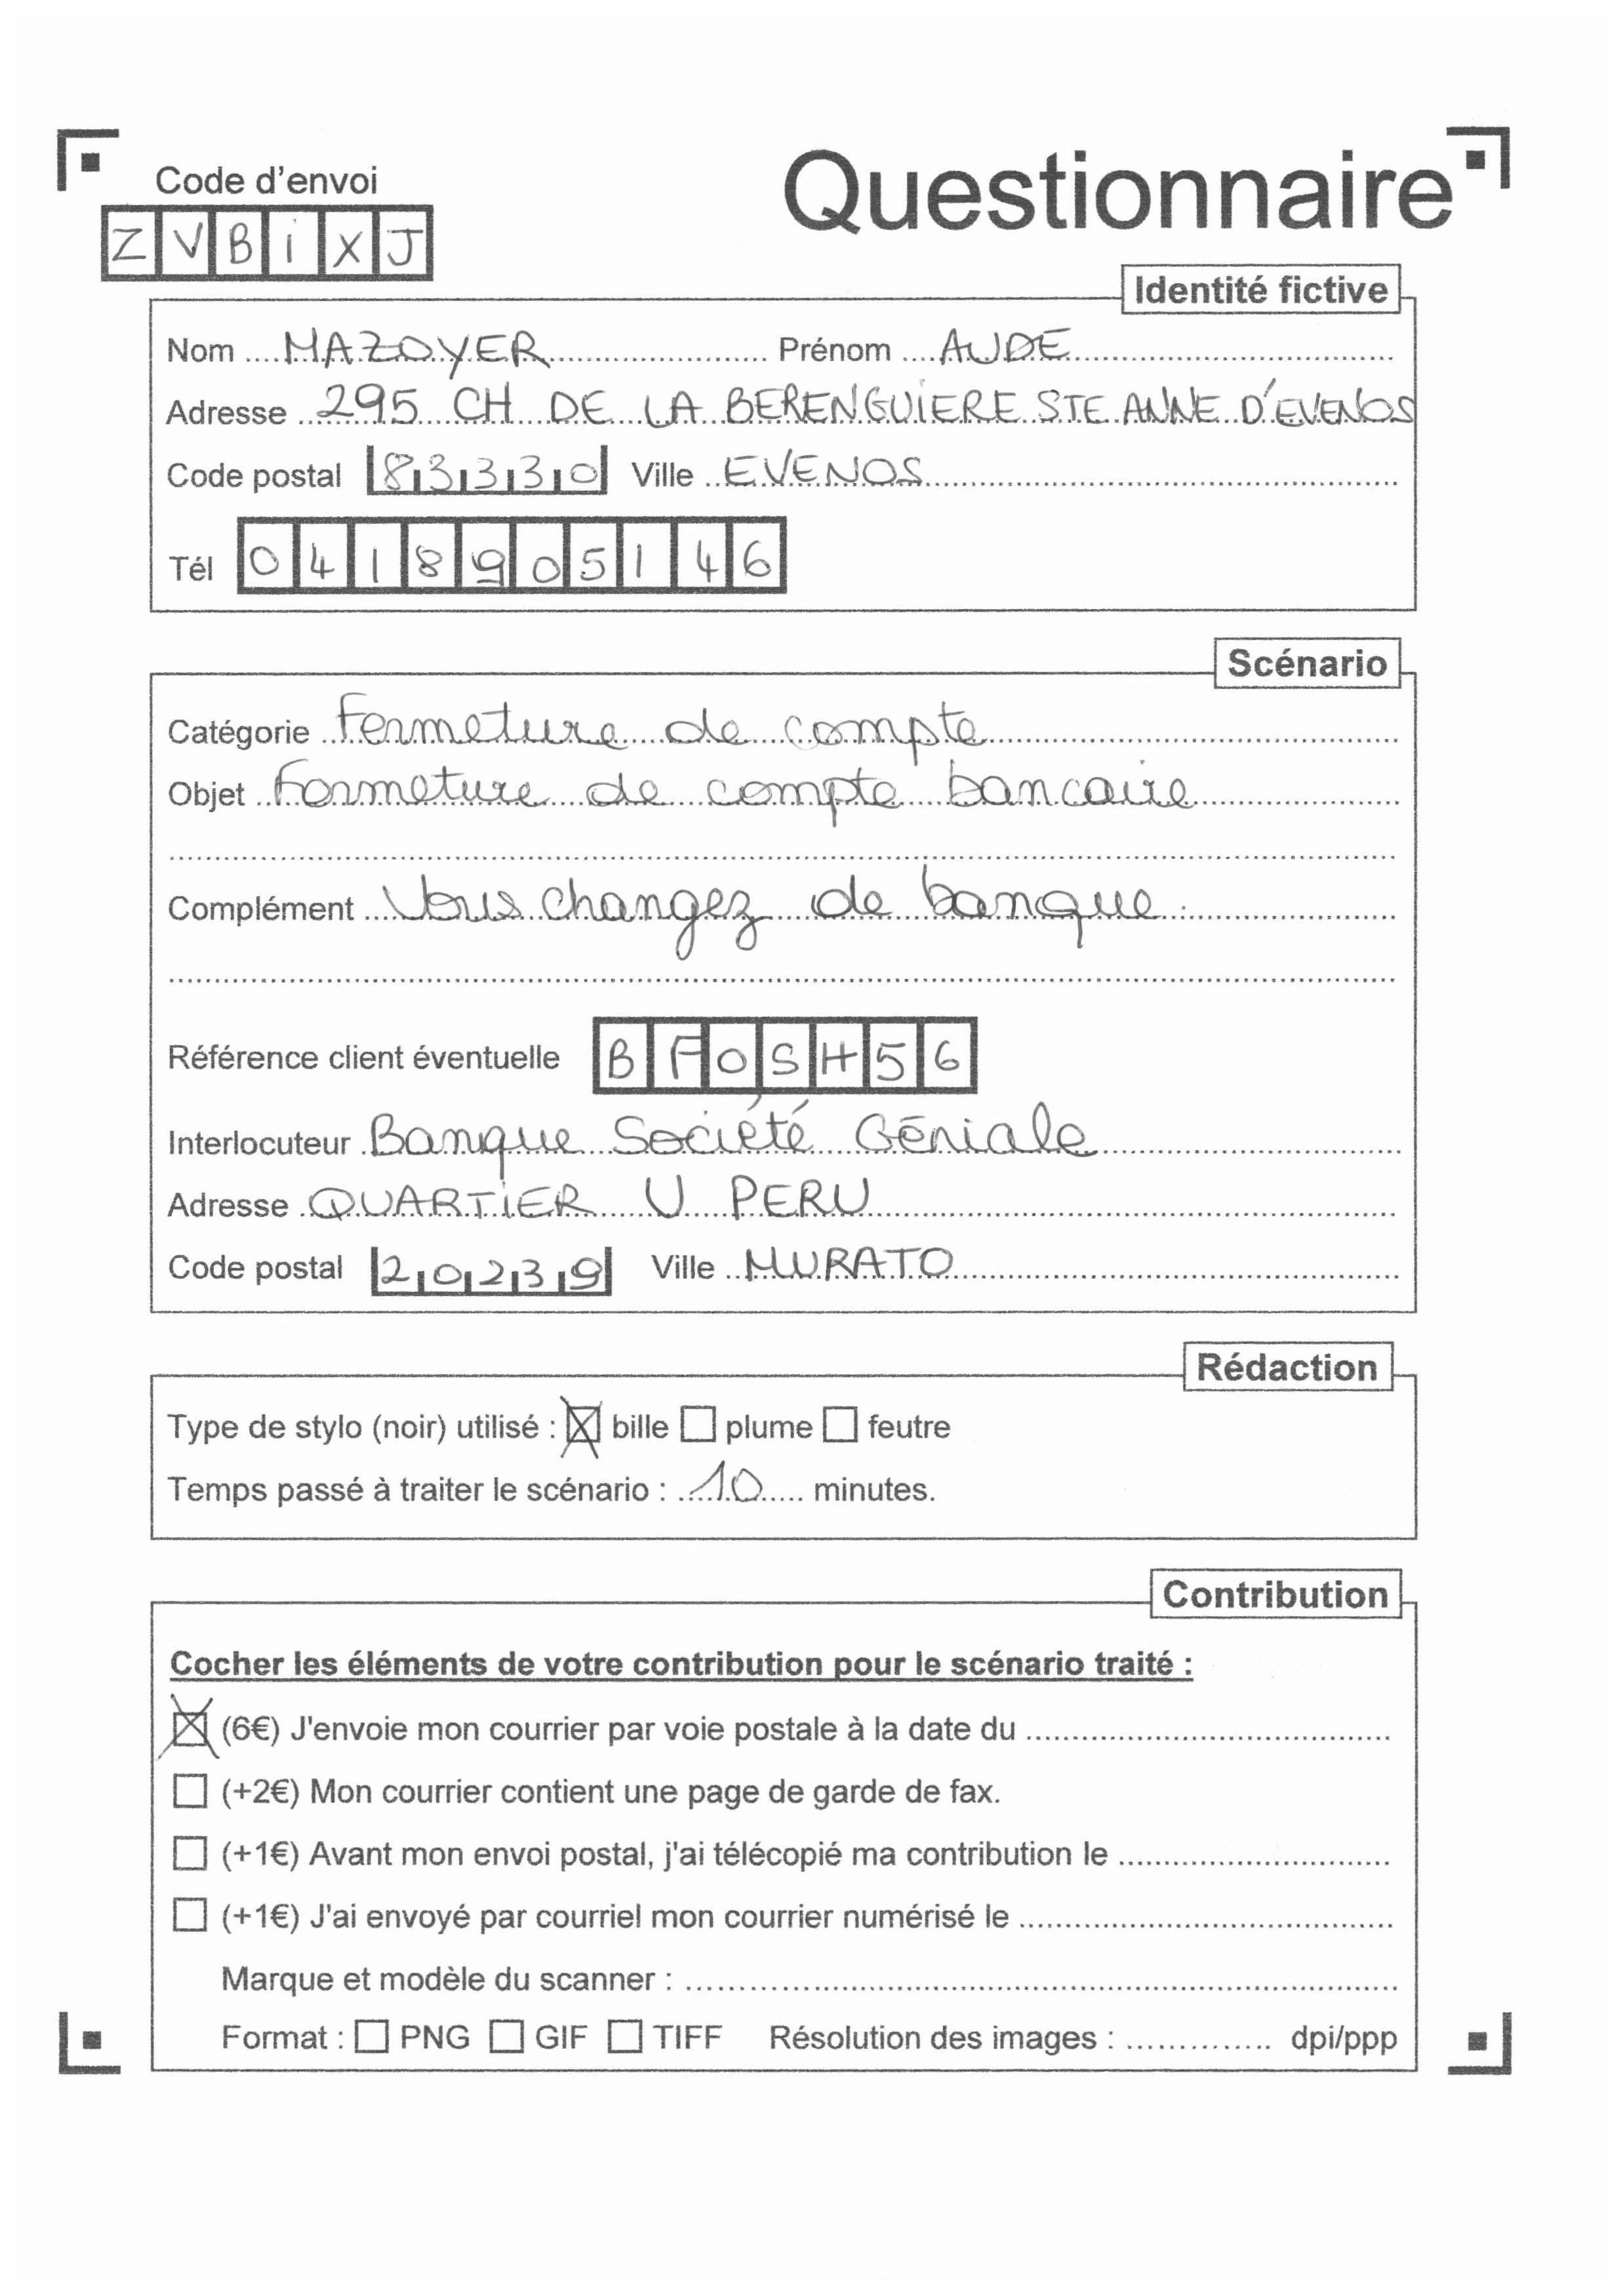 Code d'envoi
Questionnaire
ZVBiXJ
Identité fictive
Nom MAZOYER Prénom AUDE
Adresse 295 CH DE LA BERENGUIERE STE ANNE D'EVENOS
Code postal 83330 Ville EVENOS
Tél 0418905146
Scénario
Catégorie Fermeture de compte
Objet Fermeture de compte bancaire
Complément Vous changez de banque.
Référence client éventuelle BFOSH56
Interlocuteur Banque Société Géniale
Adresse QUARTIER U PERU
Code postal 20239 Ville MURATO
Rédaction
Type de stylo (noir) utilisé : bille plume feutre
Temps passé à traiter le scénario : 10 minutes.
Contribution
Cocher les éléments de votre contribution pour le scénario traité :
(6€) J'envoie mon courrier par voie postale à la date du
(+2€) Mon courrier contient une page de garde de fax.
(+1€) Avant mon envoi postal, j'ai télécopié ma contribution le
(+1€) J'ai envoyé par courriel mon courrier numérisé le
Marque et modèle du scanner :
Format : PNG GIF TIFF Résolution des images : dpi/ppp